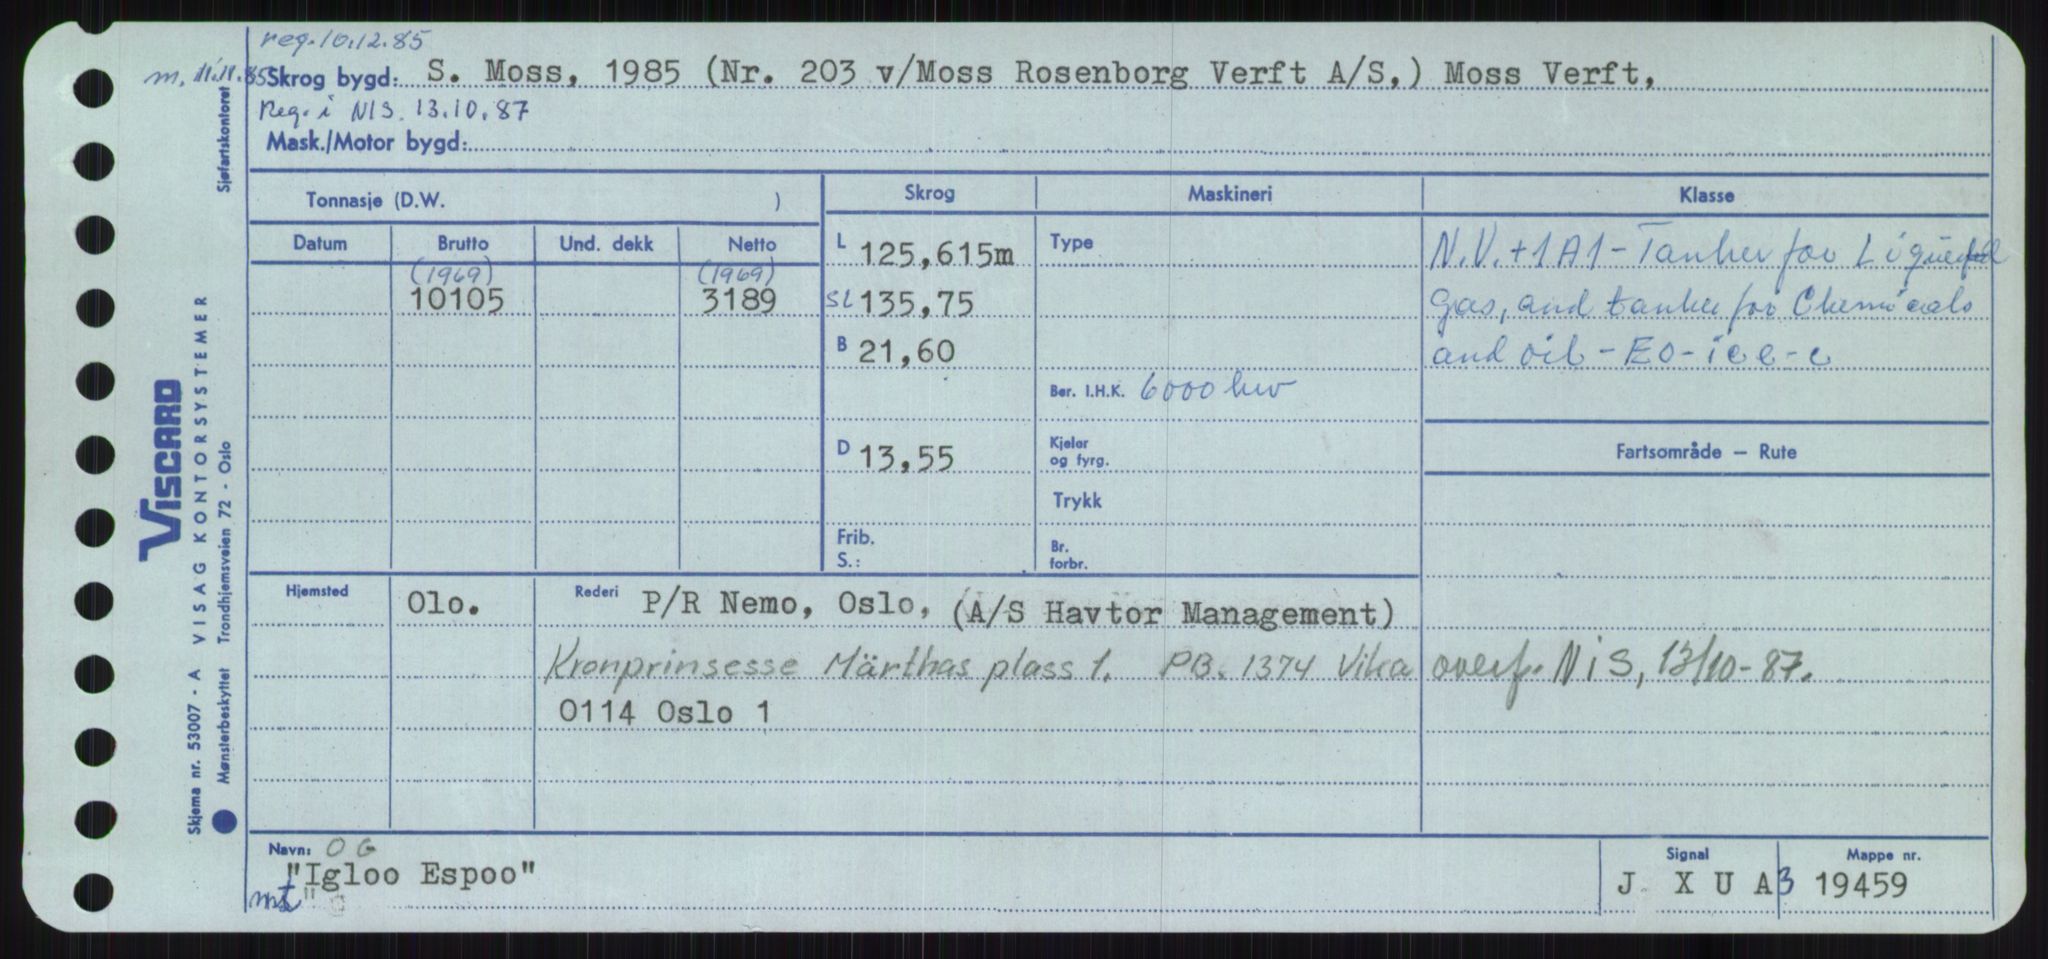 reg. 10.12.85
m. 11.11.85 Skrog bygd: S. Moss, 1985 (Nr. 203 v/Moss Rosenborg Verft A/S,) Moss Verft,
Reg. i NIS. 13.10.87
Mask./Motor bygd:
Sjøfartskontoret
Tonnasje (D.W. )
Skrog
Maskineri
Klasse
Datum Brutto Und. dekk Netto
(1969) (1969)
10105 3189
L 125,615m
SL 135,75
B 21,60
D 13,55
Frib.
S.:
Type
Ber. I.H.K. 6000 hw
Kjeler
og fyrg.
Trykk
Br.
forbr.
N.V. +1A1 - Tanker for Liquefied
gas, and tanker for Chemicals
and oil - EO - ice - c
Fartsområde – Rute
Hjemsted Olo. Rederi P/R Nemo, Oslo, (A/S Havtor Management)
Kronprinsesse Märthas plass 1. PB. 1374 Vika
0114 Oslo 1
overf. NiS, 13/10-87.
Navn: OG
"Igloo Espoo"
mt "
Signal
J X U A 3
Mappe nr.
19459
VISCARD
VISAG KONTORSYSTEMER
Skjema nr. 53007 - A
Mønsterbeskyttet Trondhjemsveien 72 - Oslo